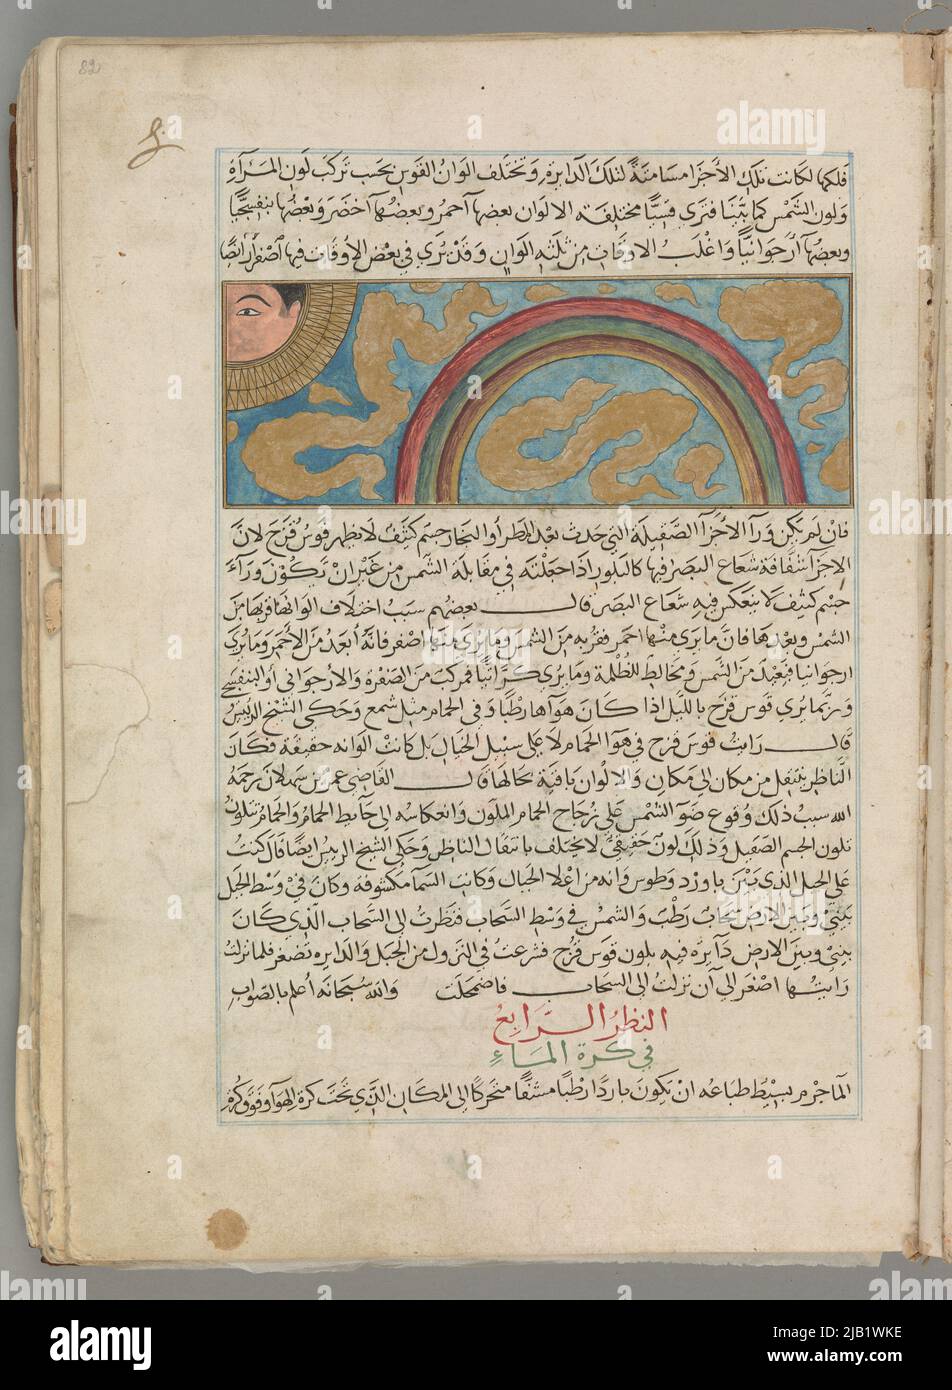 82
فكلما لكانت تلك الأجزا مسامتة لتلك الدايرة وتختلف الوان القوس بحسب تركب لون المرآة
ولون الشمس كما بيّنا فترى قسيّا مختلفة الالوان بعضها آحمر وبعضها آخضر وبعضها بنفسجيّا
وبعضها آرجوانيّا واغلب الاوقات من ثلثة الوان وقد يرى في بعض الأوقات فيها آصفر أيضا
فان لم يكن ورآ الاجزآ الصقيلة التي حدث بعد المطر أو البخار جسم كثيف لا يظهر قوس قزح لان
الاجزآ شفافة شعاع البصر فيها كالبلور اذا جعلته في مقابلة الشمس من غير ان تكون ورآءه
جسم كثيف لا ينعكس فيه شعاع البصر قال بعضهم سبب اختلاف الوانها قربها من
الشمس وبعدها فان ما يرى منها احمر فقربه من الشمس وما يرى منها اصفر فانه أبعد من الاحمر وما يرى
ارجوانيا فبعيد من الشمس ومخالط للظلمة وما يرى كرّاثيا فمركب من الصفرة والارجواني أو البنفسجي
وربما يرى قوس قزح بالليل اذا كان هوآها رطبا وفي الحمام مثل شمع وحكى الشيخ الرئيس
قال رايت قوس قزح في هوآ الحمام لا على سبيل الخيال بل كانت الوانه حقيقة فكان
الناظر ينتقل من مكان الى مكان والالوان باقية بحالها قال القاضي عمر بن سهلان رحمه
الله سبب ذلك وقوع ضوآ الشمس على زجاج الحمام الملون وانعكاسه الى حآيط الحمام والحمام تتلون
تلون الجسم الصقيل وذلك لون حقيقيّ لا يختلف بانتقال الناظر وحكى الشيخ الرئيس ايضا قال كنت
على الجبل الذي بين باورد وطوس وانه من اعلا الجبال وكانت السمآ مكشوفة وكان في وسط الجبل
بيني وبين الارض سحاب رطب والشمس في وسط السحاب فنظرت الى السحاب الذي كان
بيني وبين الارض دآيرة فيه بلون قوس قزح فشرعت في النزول من الجبل والدايره تصغر فلما نزلت
رايتها اصغر الى آن نزلت الى السحاب فاضمحلت والله سبحانه أعلم بالصواب
النظر الرابع
في كرة الماء
الما جرم بسيط طباعه ان يكون باردا رطبا مشفّا متحركا الى المكان الذي تحت كرة الهوآ وفوق كرة
alamy
Image ID: 2JB1WKE
www.alamy.com